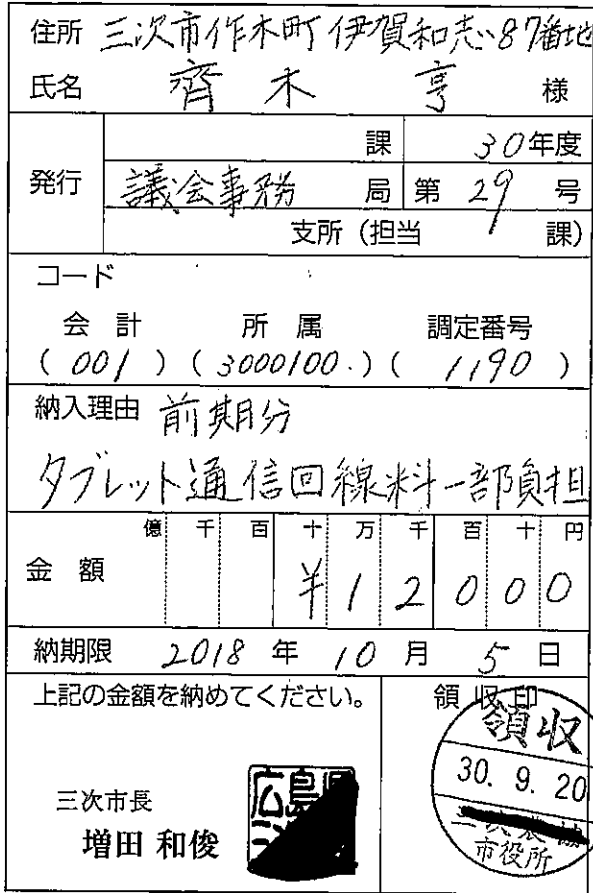 住所 三次市作木町伊賀和志87番地
氏名 齊木 亨 様
課 30年度
発行 議会事務 局 第 29 号
支所(担当 課)
コード
会計 所属 調定番号
(001)(3000100.)(1190)
納入理由 前期分
タブレット通信回線料一部負担
億 千 百 十 万 千 百 十 円
金額 ¥12000
納期限 2018年10月5日
上記の金額を納めてください。 領収印
領収
30.9.20
市役所
三次市長
増田 和俊
広島県